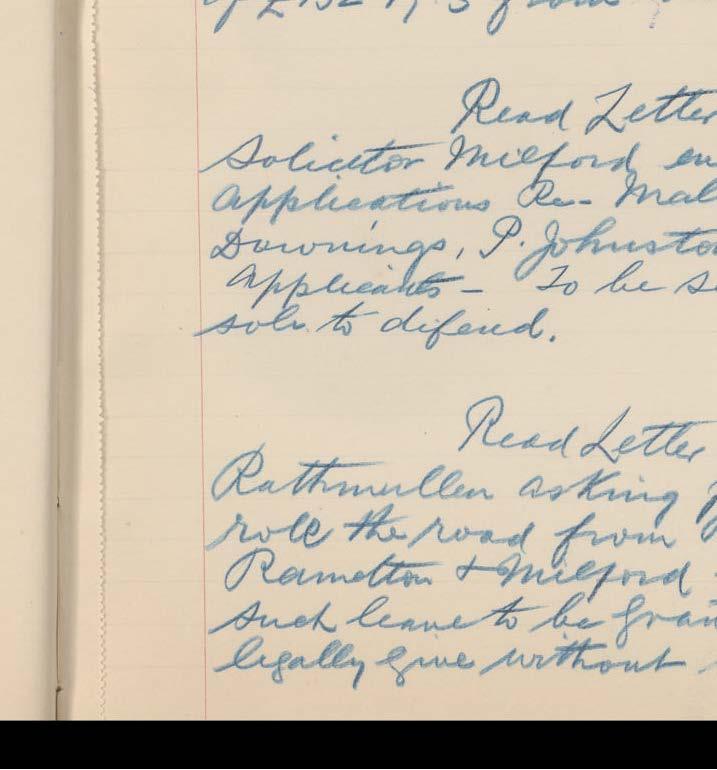 Read Letter
Solicitor Milford
applications Re- Mal
Downings, P. Johnsto
Applicants - To be s
solr. to defend.
Read Letter
Rathmullen asking
role the road from
Ramelton & Milford
such leave to be gran
legally give without